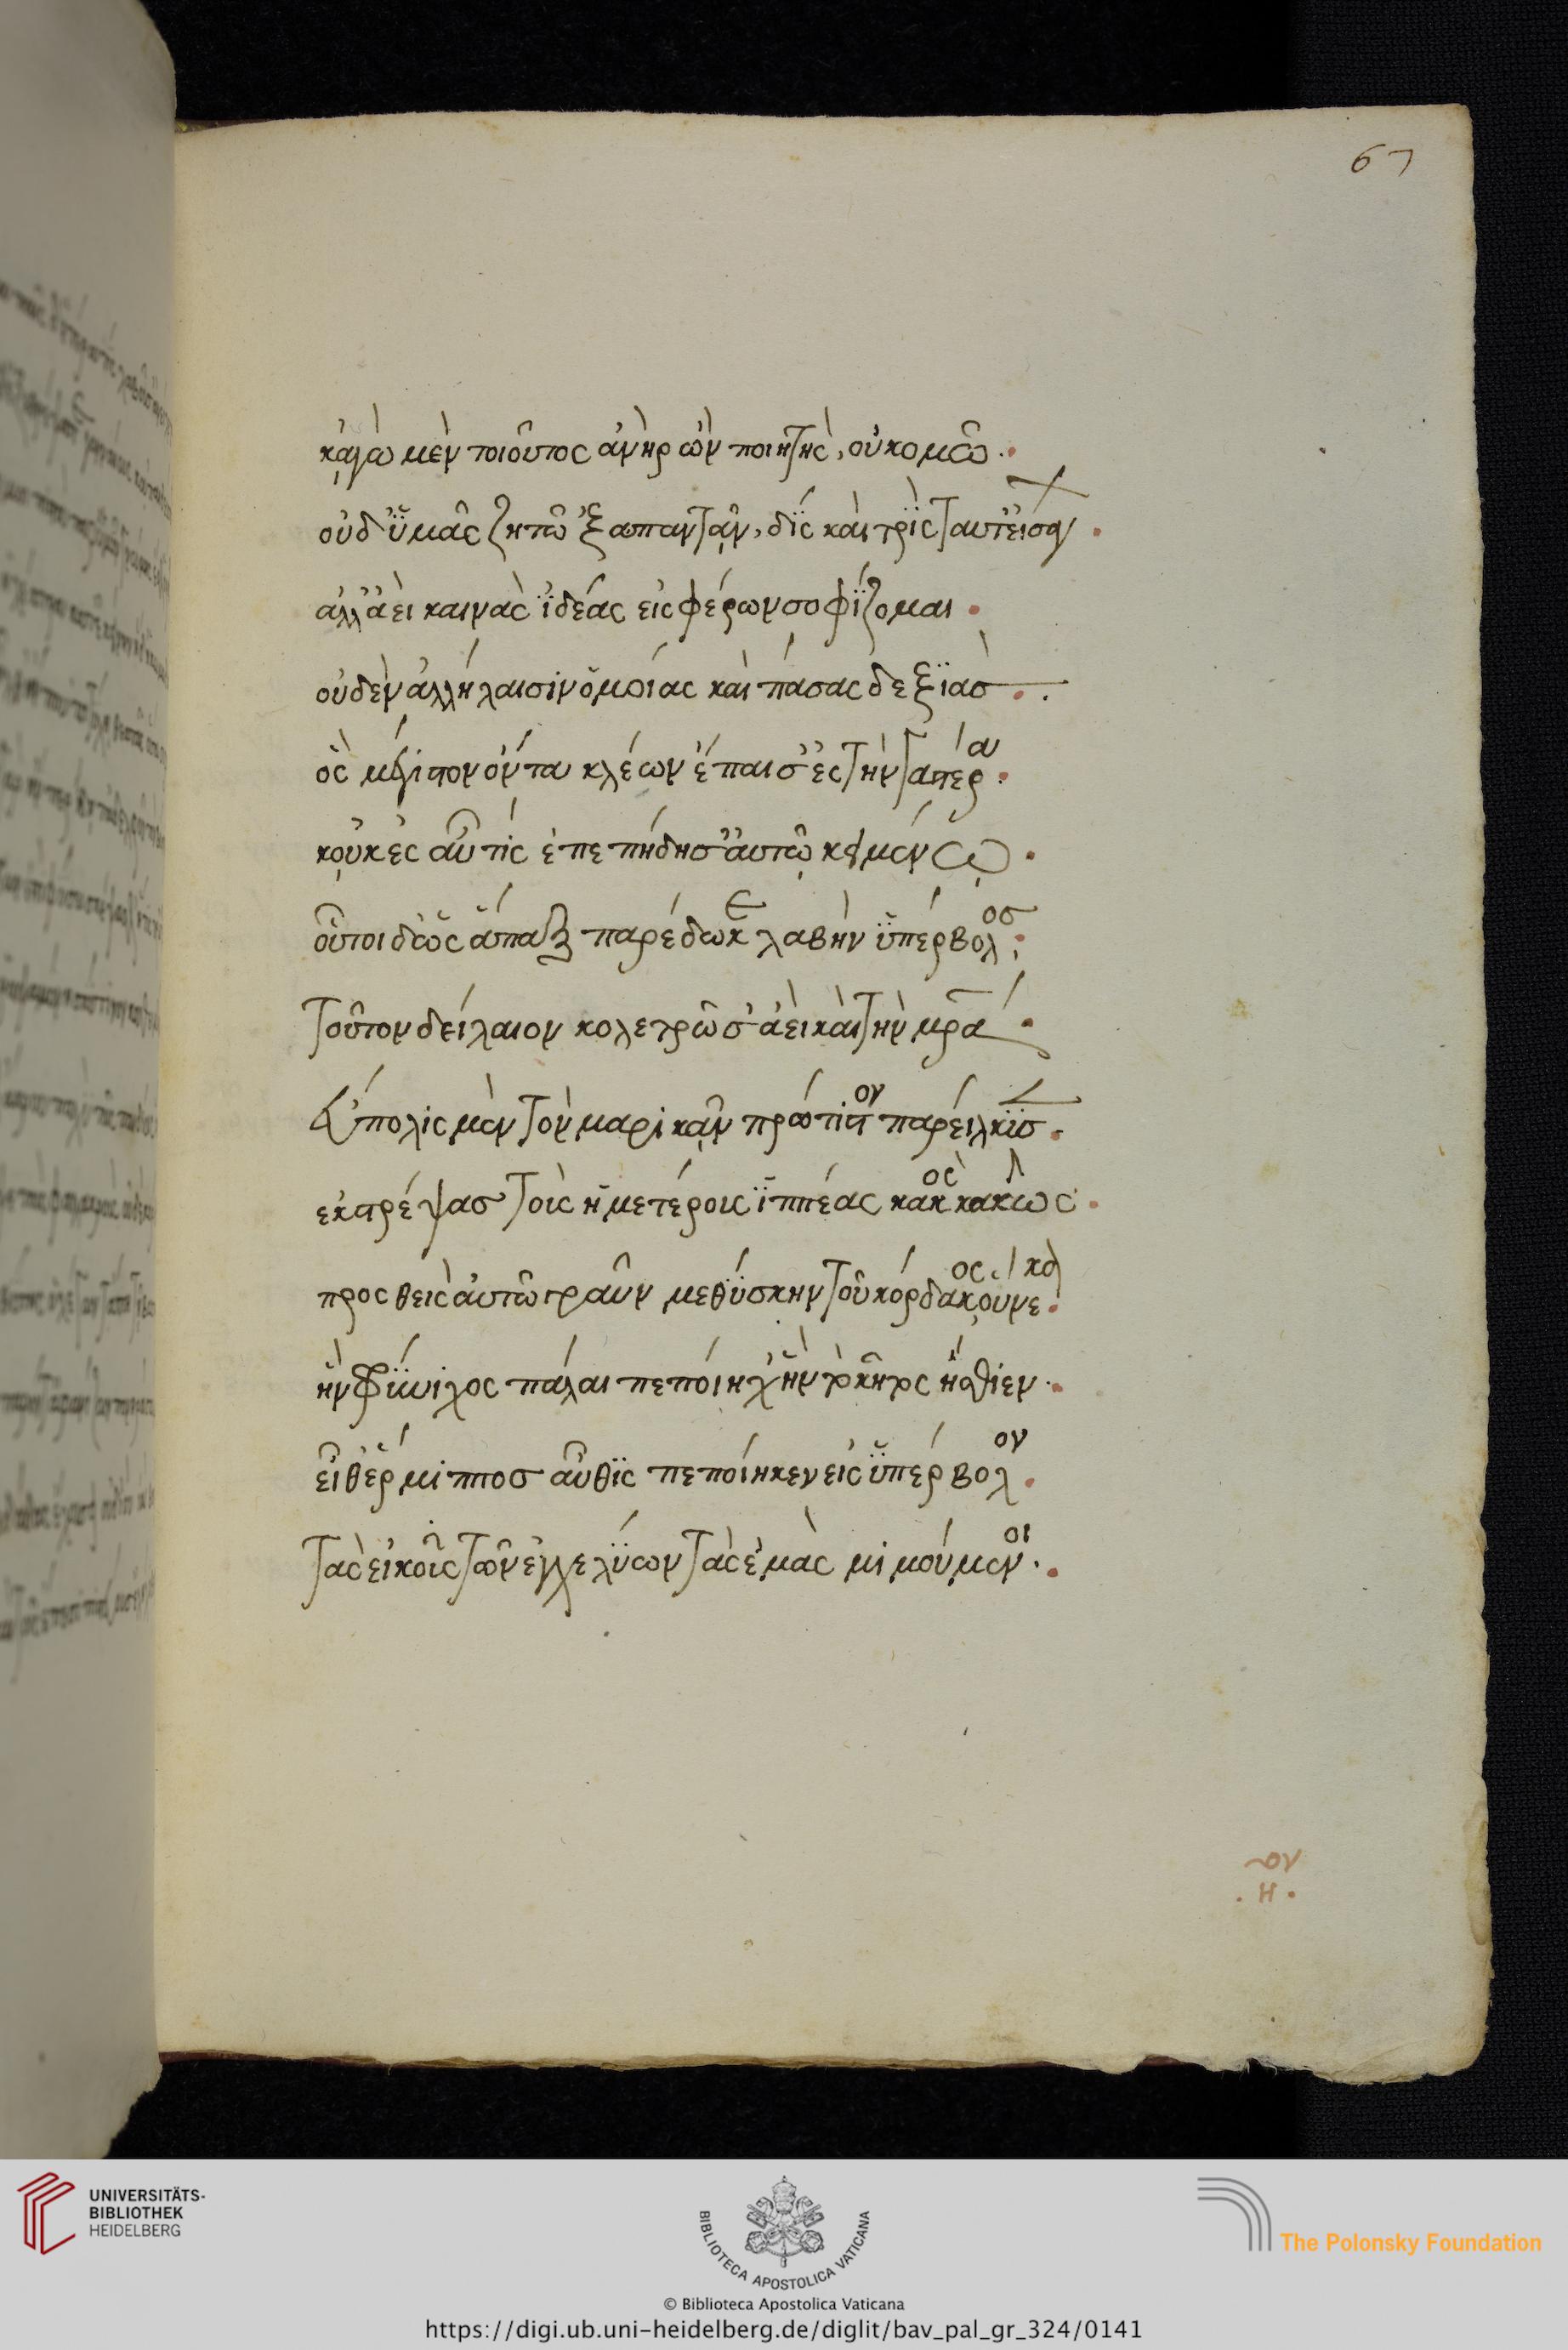 67
κἀγὼ μὲν τοιοῦτος ἀνὴρ ὢν ποιητὴς, οὐ κομῶ.
οὐδ' ὑμᾶς ζητῶ ξαπαντᾶν, δὶς καὶ τρὶς ταυτ' εἰσαγ
ἀλλ' ἀεὶ καινὰς ἰδέας εἰσφέρων σοφίζομαι.
οὐδὲν ἀλλήλαισιν ὁμοίας καὶ πάσας δεξιὰσ.
ὃς μέγιστον ὄντα κλέων' ἔπαισ' ἐς τὴν γαστέρα.
κοὐκ ἐς αὖτίς ἐπεπήδησ' αὐτῷ κειμένῳ.
οὗτοι δ' ὡς ἅπαξ παρέδωκε λαβὴν ὑπέρβολος.
τοῦτον δείλαιον κολετρῶσ' ἀεὶ καὶ τὴν μρ̅α.
εὔπολις μὲν τὸν μαρικᾶν πρώτιστον παρείλκυσ.
ἐκτρέψασ τοὺς ἡμετέρους ἱππέας κακὸς κακῶς.
προσθεὶς αὐτῷ γραῦν μεθύσην τοῦ κόρδακος οὕνεκα.
ἣν φρύνιχος πάλαι πεποίηχ' ἣν τὸ κῆτος ἤσθιεν.
εἶθ' ἕρμιπποσ αὖθις πεποίηκεν εἰς ὑπέρβολον.
τὰς εἰκοῦς τῶν ἐγχελύων τὰς ἐμὰς μιμούμενοι.
ον
.η.
UNIVERSITÄTS-
BIBLIOTHEK
HEIDELBERG
BIBLIOTECA APOSTOLICA VATICANA
The Polonsky Foundation
© Biblioteca Apostolica Vaticana
https://digi.ub.uni-heidelberg.de/diglit/bav_pal_gr_324/0141